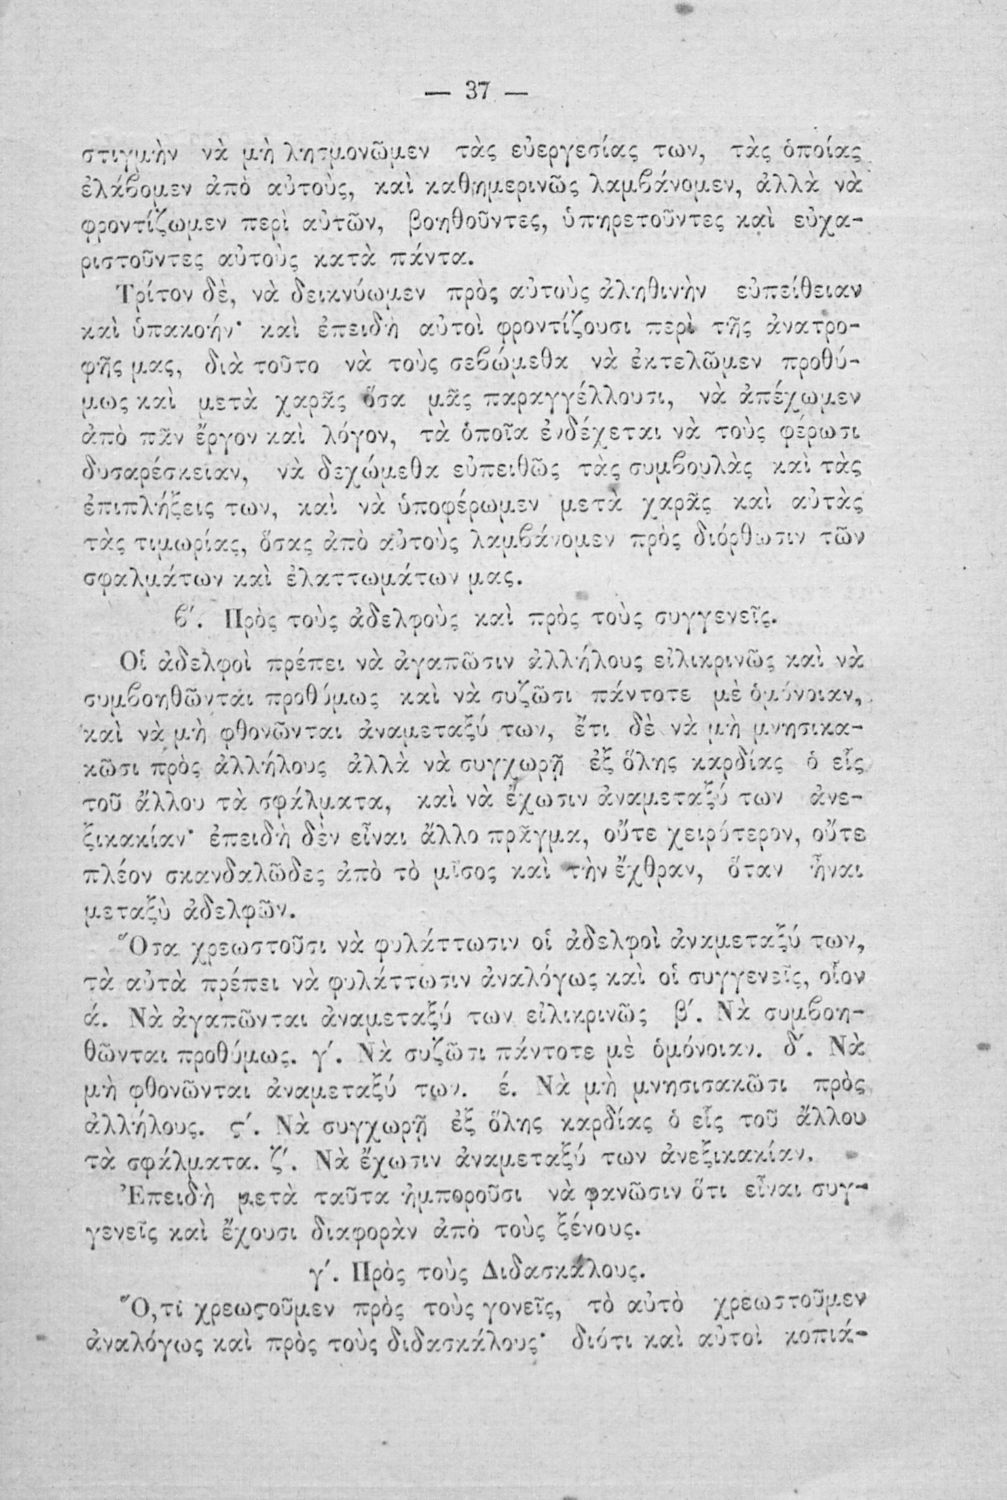 — 37 —
στιγμὴν νὰ μὴ λησμονῶμεν τὰς εὐεργεσίας των, τὰς ὁποίας
ἐλάβομεν ἀπὸ αὐτοὺς, καὶ καθημερινῶς λαμβάνομεν, ἀλλὰ νὰ
φροντίζωμεν περὶ αὐτῶν, βοηθοῦντες, ὑπηρετοῦντες καὶ εὐχα-
ριστοῦντες αὐτοὺς κατὰ πάντα.
Τρίτον δὲ, νὰ δεικνύωμεν πρὸς αὐτοὺς ἀληθινὴν εὐπείθειαν
καὶ ὑπακοήν· καὶ ἐπειδὴ αὐτοὶ φροντίζουσι περὶ τῆς ἀνατρο-
φῆς μας, διὰ τοῦτο νὰ τοὺς σεβώμεθα νὰ ἐκτελῶμεν προθύ-
μως καὶ μετὰ χαρᾶς ὅσα μᾶς παραγγέλλουσι, νὰ ἀπέχωμεν
ἀπὸ πᾶν ἔργον καὶ λόγον, τὰ ὁποῖα ἐνδέχεται νὰ τοὺς φέρωσι
δυσαρέσκειαν, νὰ δεχώμεθα εὐπειθῶς τὰς συμβουλὰς καὶ τὰς
ἐπιπλήξεις των, καὶ νὰ ὑποφέρωμεν μετὰ χαρᾶς καὶ αὐτὰς
τὰς τιμωρίας, ὅσας ἀπὸ αὐτοὺς λαμβάνομεν πρὸς διόρθωσιν τῶν
σφαλμάτων καὶ ἐλαττωμάτων μας.
β´. Πρὸς τοὺς ἀδελφοὺς καὶ πρὸς τοὺς συγγενεῖς.
Οἱ ἀδελφοὶ πρέπει νὰ ἀγαπῶσιν ἀλλήλους εἰλικρινῶς καὶ νὰ
συμβοηθῶνται προθύμως καὶ νὰ συζῶσι πάντοτε μὲ ὁμόνοιαν,
καὶ νὰ μὴ φθονῶνται ἀναμεταξύ των, ἔτι δὲ νὰ μὴ μνησικα-
κῶσι πρὸς ἀλλήλους ἀλλὰ νὰ συγχωρῇ ἐξ ὅλης καρδίας ὁ εἷς
τοῦ ἄλλου τὰ σφάλματα, καὶ νὰ ἔχωσιν ἀναμεταξύ των ἀνε-
ξικακίαν· ἐπειδὴ δὲν εἶναι ἄλλο πρᾶγμα, οὔτε χειρότερον, οὔτε
πλέον σκανδαλῶδες ἀπὸ τὸ μῖσος καὶ τὴν ἔχθραν, ὅταν ᾖναι
μεταξὺ ἀδελφῶν.
Ὅσα χρεωστοῦσι νὰ φυλάττωσιν οἱ ἀδελφοὶ ἀναμεταξύ των,
τὰ αὐτὰ πρέπει νὰ φυλάττωσιν ἀναλόγως καὶ οἱ συγγενεῖς, οἷον
ά. Νὰ ἀγαπῶνται ἀναμεταξύ των εἰλικρινῶς β´. Νὰ συμβοη-
θῶνται προθύμως. γ´. Νὰ συζῶσι πάντοτε μὲ ὁμόνοιαν. δ´. Νὰ
μὴ φθονῶνται ἀναμεταξύ των. έ. Νὰ μὴ μνησισακῶσι πρὸς
ἀλλήλους. ϛ´. Νὰ συγχωρῇ ἐξ ὅλης καρδίας ὁ εἷς τοῦ ἄλλου
τὰ σφάλματα. ζ´. Νὰ ἔχωσιν ἀναμεταξύ των ἀνεξικακίαν.
Ἐπειδὴ μετὰ ταῦτα ἠμποροῦσι νὰ φανῶσιν ὅτι εἶναι συγ-
γενεῖς καὶ ἔχουσι διαφορὰν ἀπὸ τοὺς ξένους.
γ´. Πρὸς τοὺς Διδασκάλους.
Ὅ,τι χρεωϛοῦμεν πρὸς τοὺς γονεῖς, τὸ αὐτὸ χρεωστοῦμεν
ἀναλόγως καὶ πρὸς τοὺς διδασκάλους· διότι καὶ αὐτοὶ κοπιά-